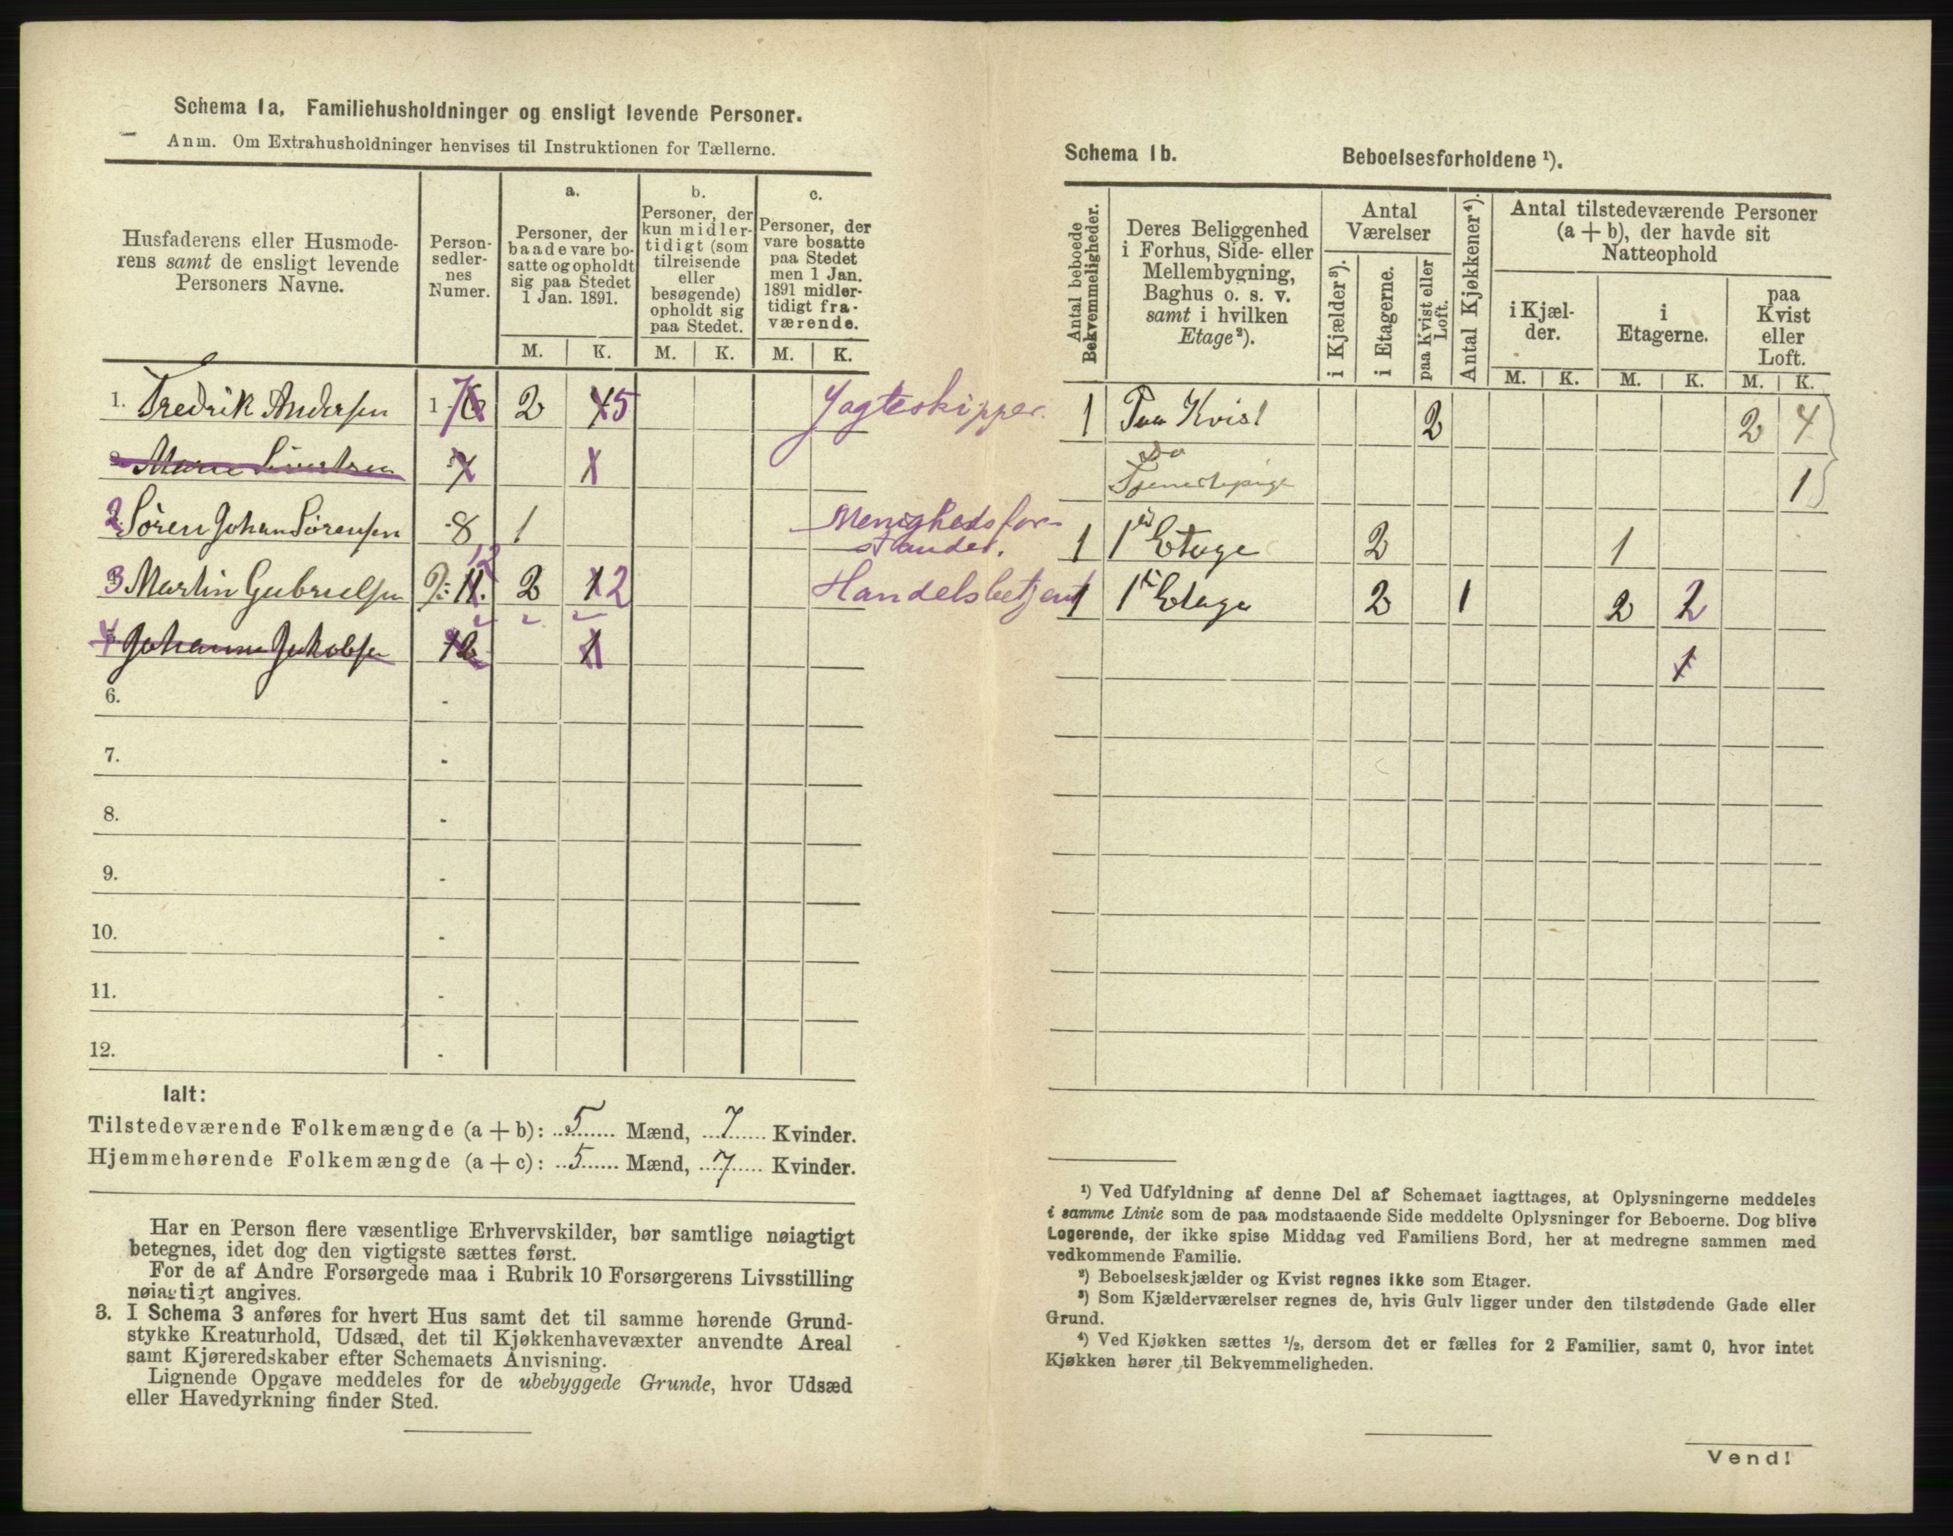 Schema 1a. Familiehusholdninger og ensligt levende Personer.
Anm. Om Extrahusholdninger henvises til Instruktionen for Tællerne.
Husfaderens eller Husmode-
rens samt de ensligt levende
Personers Navne.
Person-
sedler-
nes
Numer.
a.
Personer, der
baade vare bo-
satte og opholdt
sig paa Stedet
1 Jan. 1891.
b.
Personer, der
kun midler-
tidigt (som
tilreisende
eller
besøgende)
opholdt sig
paa Stedet.
c.
Personer, der
vare bosatte
paa Stedet
men 1 Jan.
1891 midler-
tidigt fra-
værende.
M. K. M. K. M. K.
1. Fredrik Andersen 1 - 7 2 5 Jagteskipper.
Marie Sivertsen 1
2. Søren Johan Sørensen - 8 1 Menighedsfor-
stander.
3 Martin Gabrielsen 9 - 12 2 2 Handelsbetjent
4 Johanna Jakobsen 12 1
6. -
7. -
8. -
9. -
10. -
11. -
12. -
Ialt:
Tilstedeværende Folkemængde (a + b): 5 Mænd, 7 Kvinder.
Hjemmehørende Folkemængde (a + c): 5 Mænd, 7 Kvinder.
Har en Person flere væsentlige Erhvervskilder, bør samtlige nøiagtigt
betegnes, idet dog den vigtigste sættes først.
For de af Andre Forsørgede maa i Rubrik 10 Forsørgerens Livsstilling
nøiagtigt angives.
3. I Schema 3 anføres for hvert Hus samt det til samme hørende Grund-
stykke Kreaturhold, Udsæd, det til Kjøkkenhavevæxter anvendte Areal
samt Kjøreredskaber efter Schemaets Anvisning.
Lignende Opgave meddeles for de ubebyggede Grunde, hvor Udsæd
eller Havedyrkning finder Sted.
Schema 1b. Beboelsesforholdene ¹).
Antal beboede
Bekvemmeligheder.
Deres Beliggenhed
i Forhus, Side- eller
Mellembygning,
Baghus o. s. v.
samt i hvilken
Etage²).
Antal
Værelser
i Kjælder³).
i Etagerne.
paa Kvist eller
Loft.
Antal Kjøkkener⁴).
Antal tilstedeværende Personer
(a + b), der havde sit
Natteophold
i Kjæl-
der.
i
Etagerne.
paa
Kvist
eller
Loft.
M. K. M. K. M. K.
1 Paa Kvist 2 2 4
Do
Tjenestepige 1
1 1ste Etage 2 1
1 1ste Etage 2 1 2 2
1
¹) Ved Udfyldning af denne Del af Schemaet iagttages, at Oplysningerne meddeles
i samme Linie som de paa modstaaende Side meddelte Oplysninger for Beboerne. Dog blive
Logerende, der ikke spise Middag ved Familiens Bord, her at medregne sammen med
vedkommende Familie.
²) Beboelseskjælder og Kvist regnes ikke som Etager.
³) Som Kjælderværelser regnes de, hvis Gulv ligger under den tilstødende Gade eller
Grund.
⁴) Ved Kjøkken sættes ½, dersom det er fælles for 2 Familier, samt 0, hvor intet
Kjøkken hører til Bekvemmeligheden.
Vend!